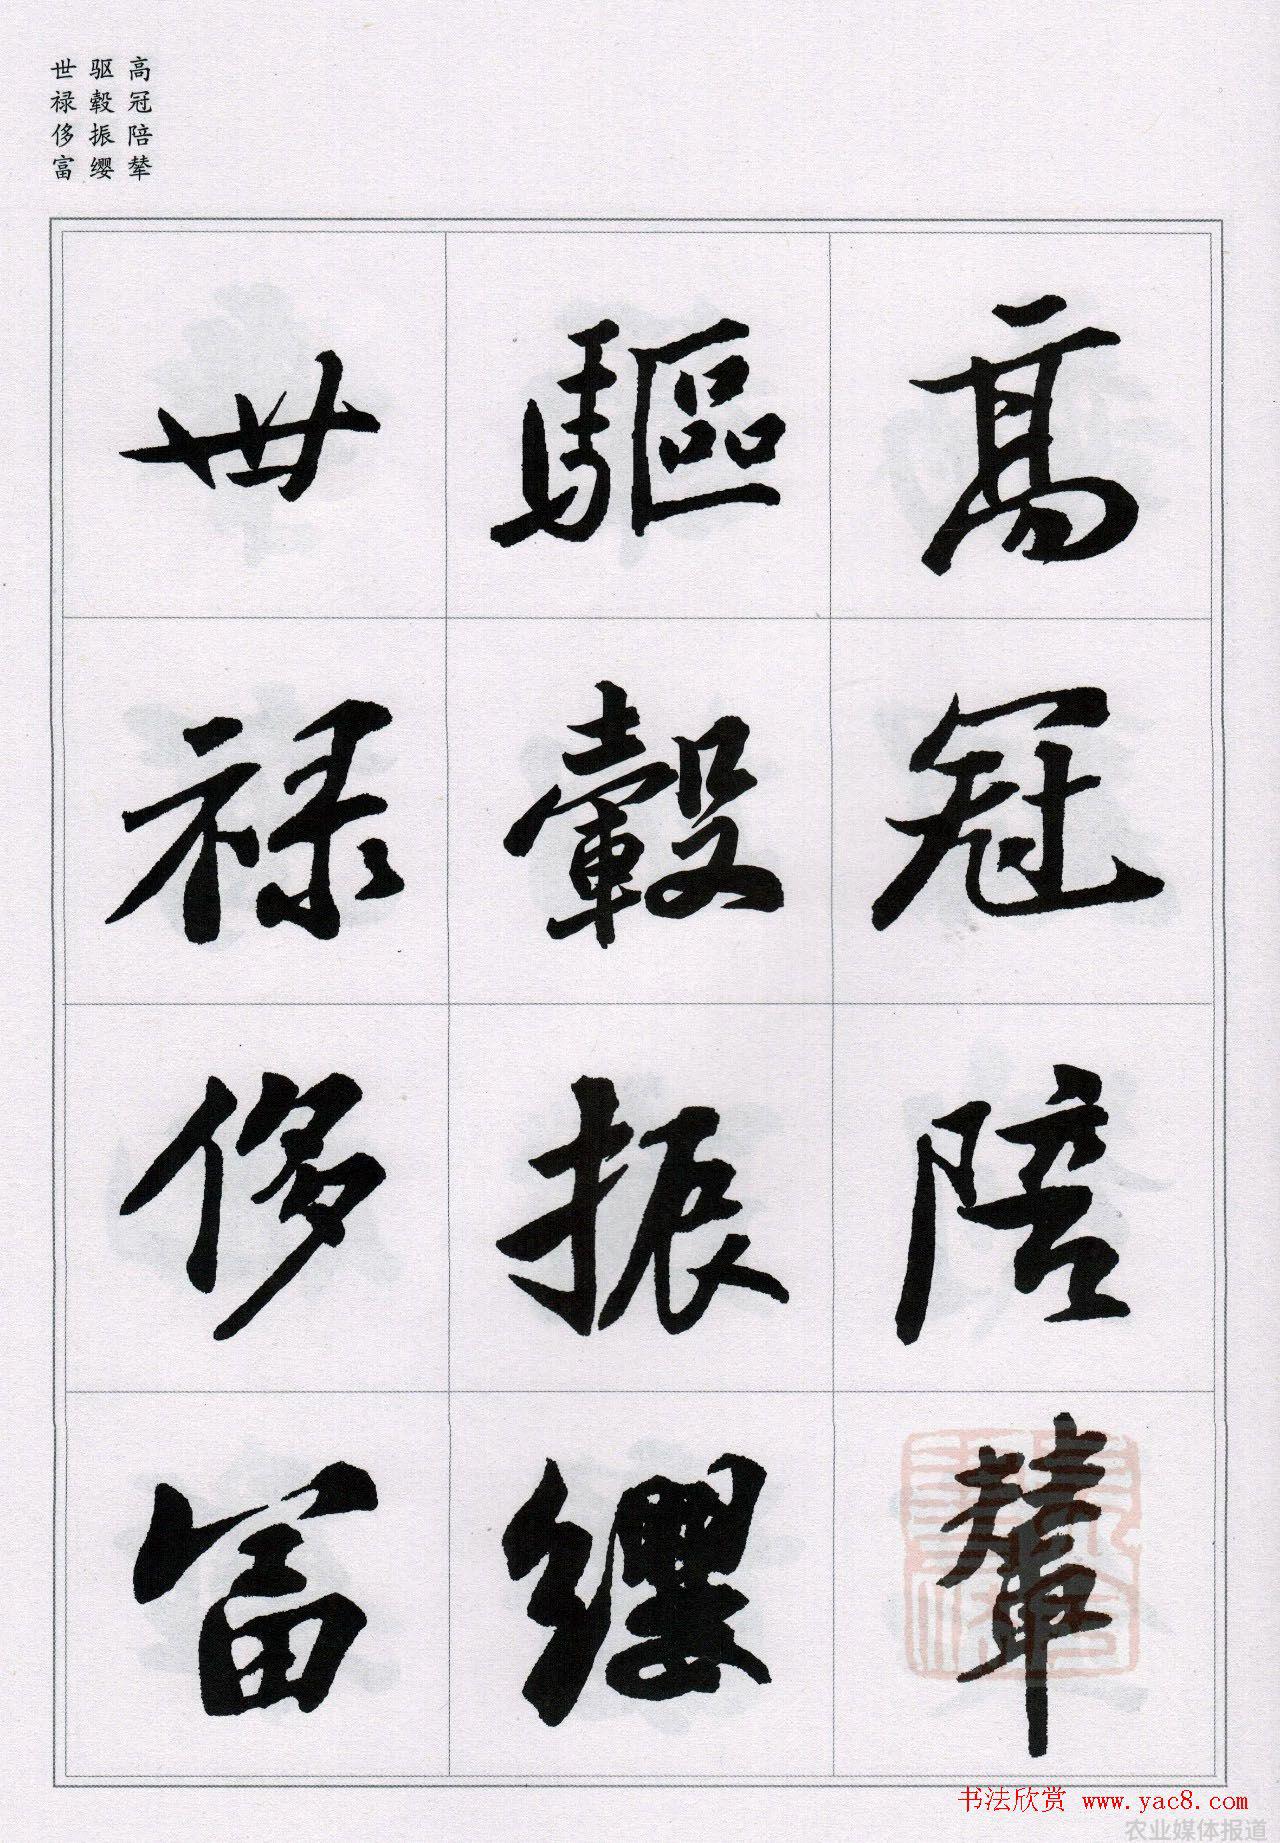 高冠陪辇
驱毂振缨
世禄侈富
高冠陪輦
驅轂振纓
世禄侈富
书法欣赏 www.yac8.com
农业媒体报道